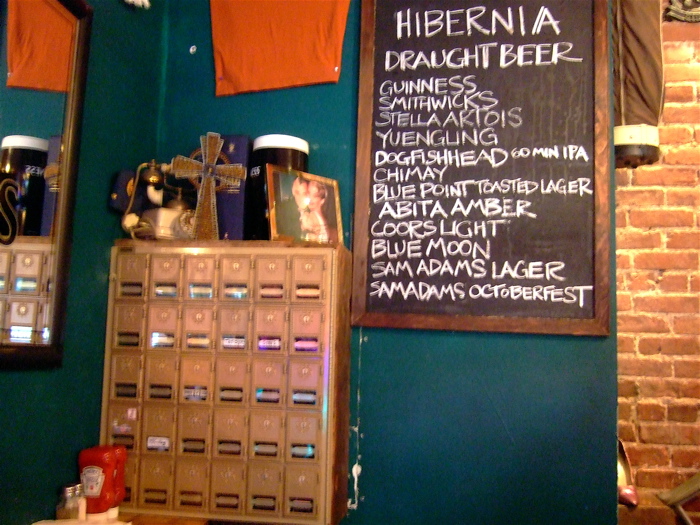 HIBERNIA
DRAUGHT BEER
GUINNESS
SMITHWICKS
STELLA ARTOIS
YUENGLING
DOGFISHHEAD 60 MIN IPA
CHIMAY
BLUE POINT TOASTED LAGER
ABITA AMBER
COORS LIGHT
BLUE MOON
SAM ADAMS LAGER
SAM ADAMS OCTOBERFEST